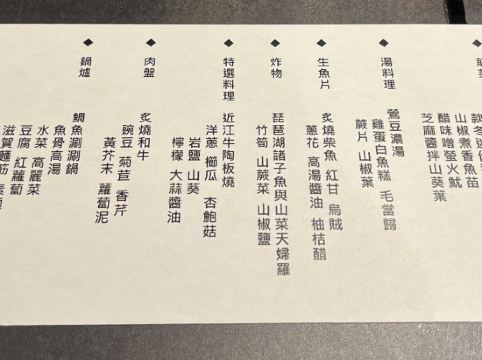 前菜
山椒煮香魚苗
醋味噌螢火魷
芝麻醬拌山葵葉
湯料理
鶯豆濃湯
雞蛋白魚糕 毛當歸
蕨片 山椒葉
生魚片
炙燒柴魚 紅甘 烏賊
蔥花 高湯醬油 柚桔醋
炸物
琵琶湖諸子魚與山菜天婦羅
竹筍 山蕨菜 山椒鹽
特選料理
近江牛陶板燒
洋蔥 櫛瓜 杏鮑菇
岩鹽 山葵
檸檬 大蒜醬油
肉盤
炙燒和牛
豌豆 菊苣 香芹
黃芥末 蘿蔔泥
鍋爐
鯛魚涮涮鍋
魚骨高湯
水菜 高麗菜
豆腐 紅蘿蔔
滋賀麵筋